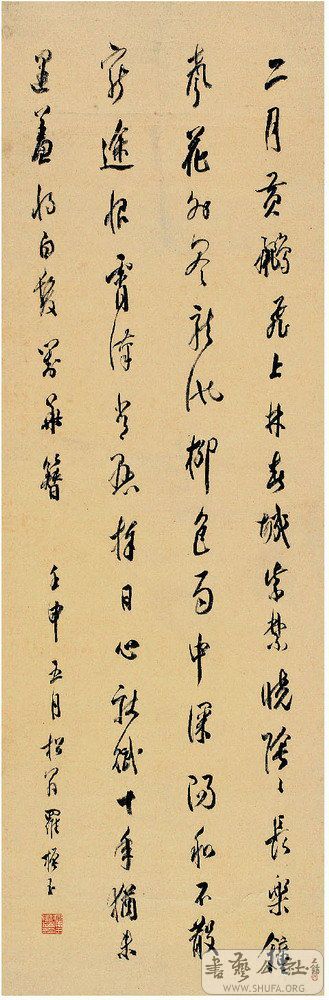 二月黃鸝飛上林春城紫禁曉陰〻長樂鐘
聲花外盡龍池柳色雨中深陽和不散
窮途恨霄漢常懸捧日心獻賦十年猶未
遇羞將白髮對華簪 壬申五月松翁羅振玉
書藝公社
WWW.SHUFA.ORG